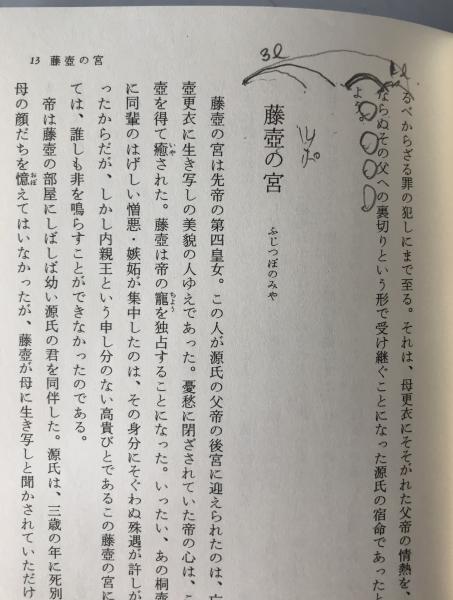 13 藤壺の宮
るべからざる罪の犯しにまで至る。それは、母更衣にそそがれた父帝の情熱を、
ならぬその父への裏切りという形で受け継ぐことになった源氏の宿命であったと
藤壺の宮
ふじつぼのみや
藤壺の宮は先帝の第四皇女。この人が源氏の父帝の後宮に迎えられたのは、亡
壺更衣に生き写しの美貌の人ゆえであった。憂愁に閉ざされていた帝の心は、こ
壺を得て癒された。藤壺は帝の寵を独占することになった。いったい、あの桐壺
に同輩のはげしい憎悪・嫉妬が集中したのは、その身分にそぐわぬ殊遇が許しが
ったからだが、しかし内親王という申し分のない高貴びとであるこの藤壺の宮に
ては、誰しも非を鳴らすことができなかったのである。
帝は藤壺の部屋にしばしば幼い源氏の君を同伴した。源氏は、三歳の年に死別
母の顔だちを憶えてはいなかったが、藤壺が母に生き写しと聞かされていただけ